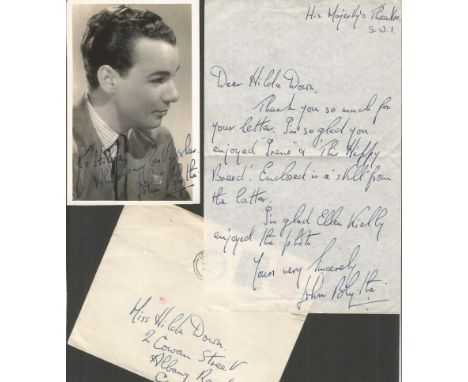 To Hilda
All my very best wishes
John Blythe
His Majesty's Theatre
S.W.1.
Dear Hilda Down,
Thank you so much for
your letter. I'm so glad you
enjoyed 'Irene' & 'This Happy
Breed'. Enclosed is a 'still' from
the latter.
I'm glad Ellen Kielly
enjoyed the photo.
Yours very sincerely
John Blythe.
Miss Hilda Down.
2 Cowan Street
Albany Road